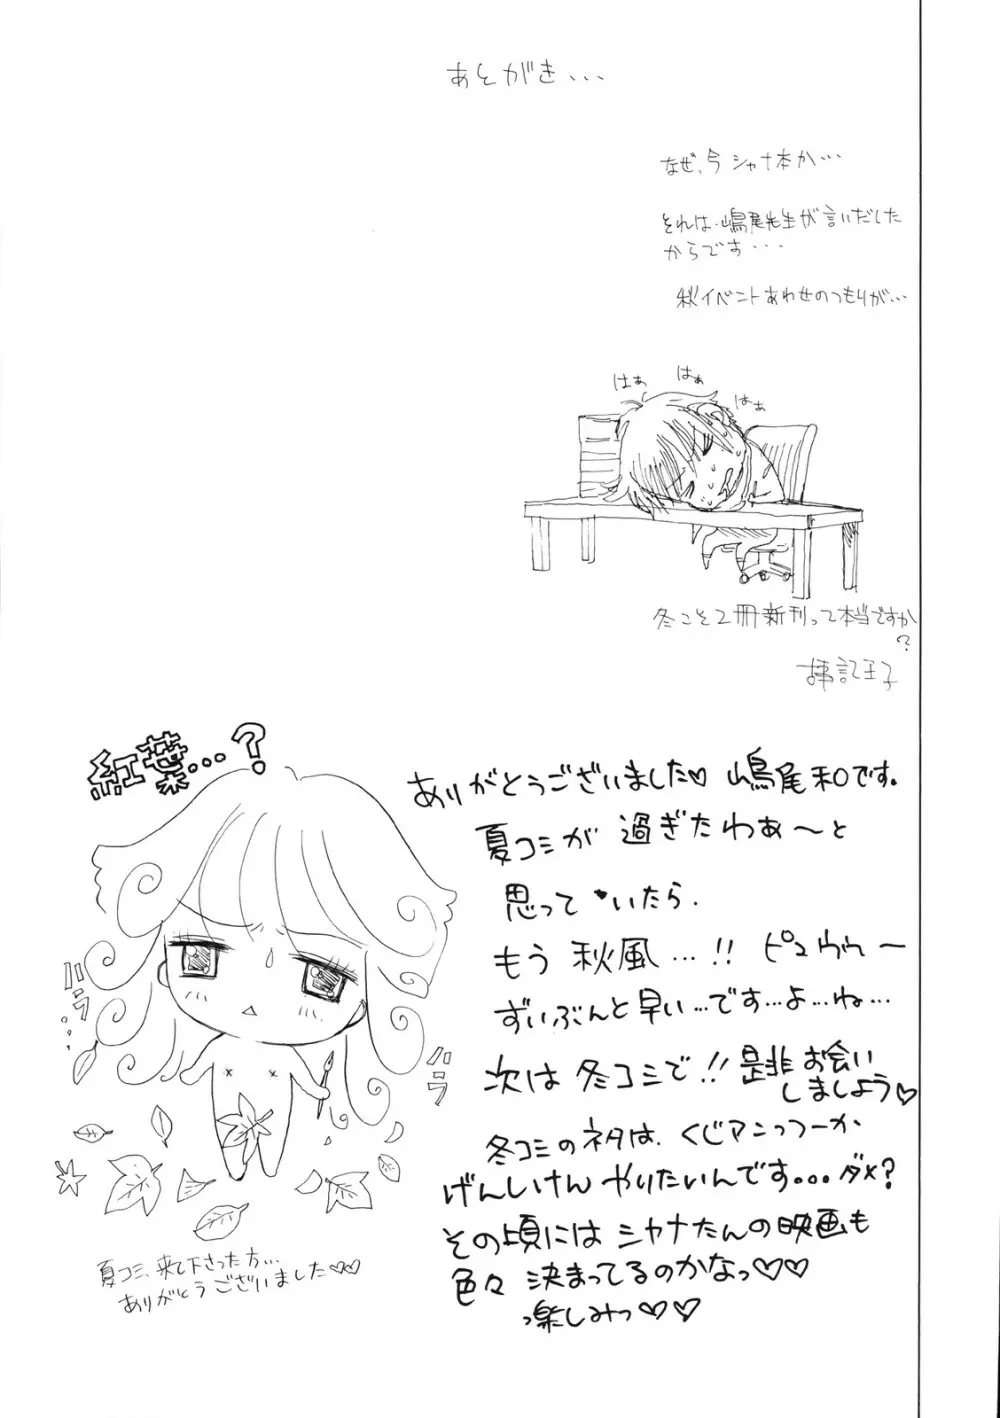 あとがき・・・
なぜ、今シャナ本か・・・
それは、嶋尾先生が言いだした
からです・・・
秋イベントあわせのつもりが・・・
はぁ
はぁ
はぁ
冬こそ2冊新刊って本当ですか
?
紅葉…?
ありがとうございました♡ 嶋尾和です。
夏コミが 過ぎたわぁ〜と
思って いたら、
もう 秋風…!! ピュウゥー
ずいぶんと早い…です…よ…ね…
次は 冬コミで!! 是非お会い
しましょう♡
冬コミのネタは、くじアンっつーか
げんしけん やりたいんです…ダメ?
その頃には シャナたんの映画も
色々 決まってるのかなっ♡♡
っ楽しみっ♡♡
ハラ
ハラ
夏コミ、来て下さった方…
ありがとうございました♡♡